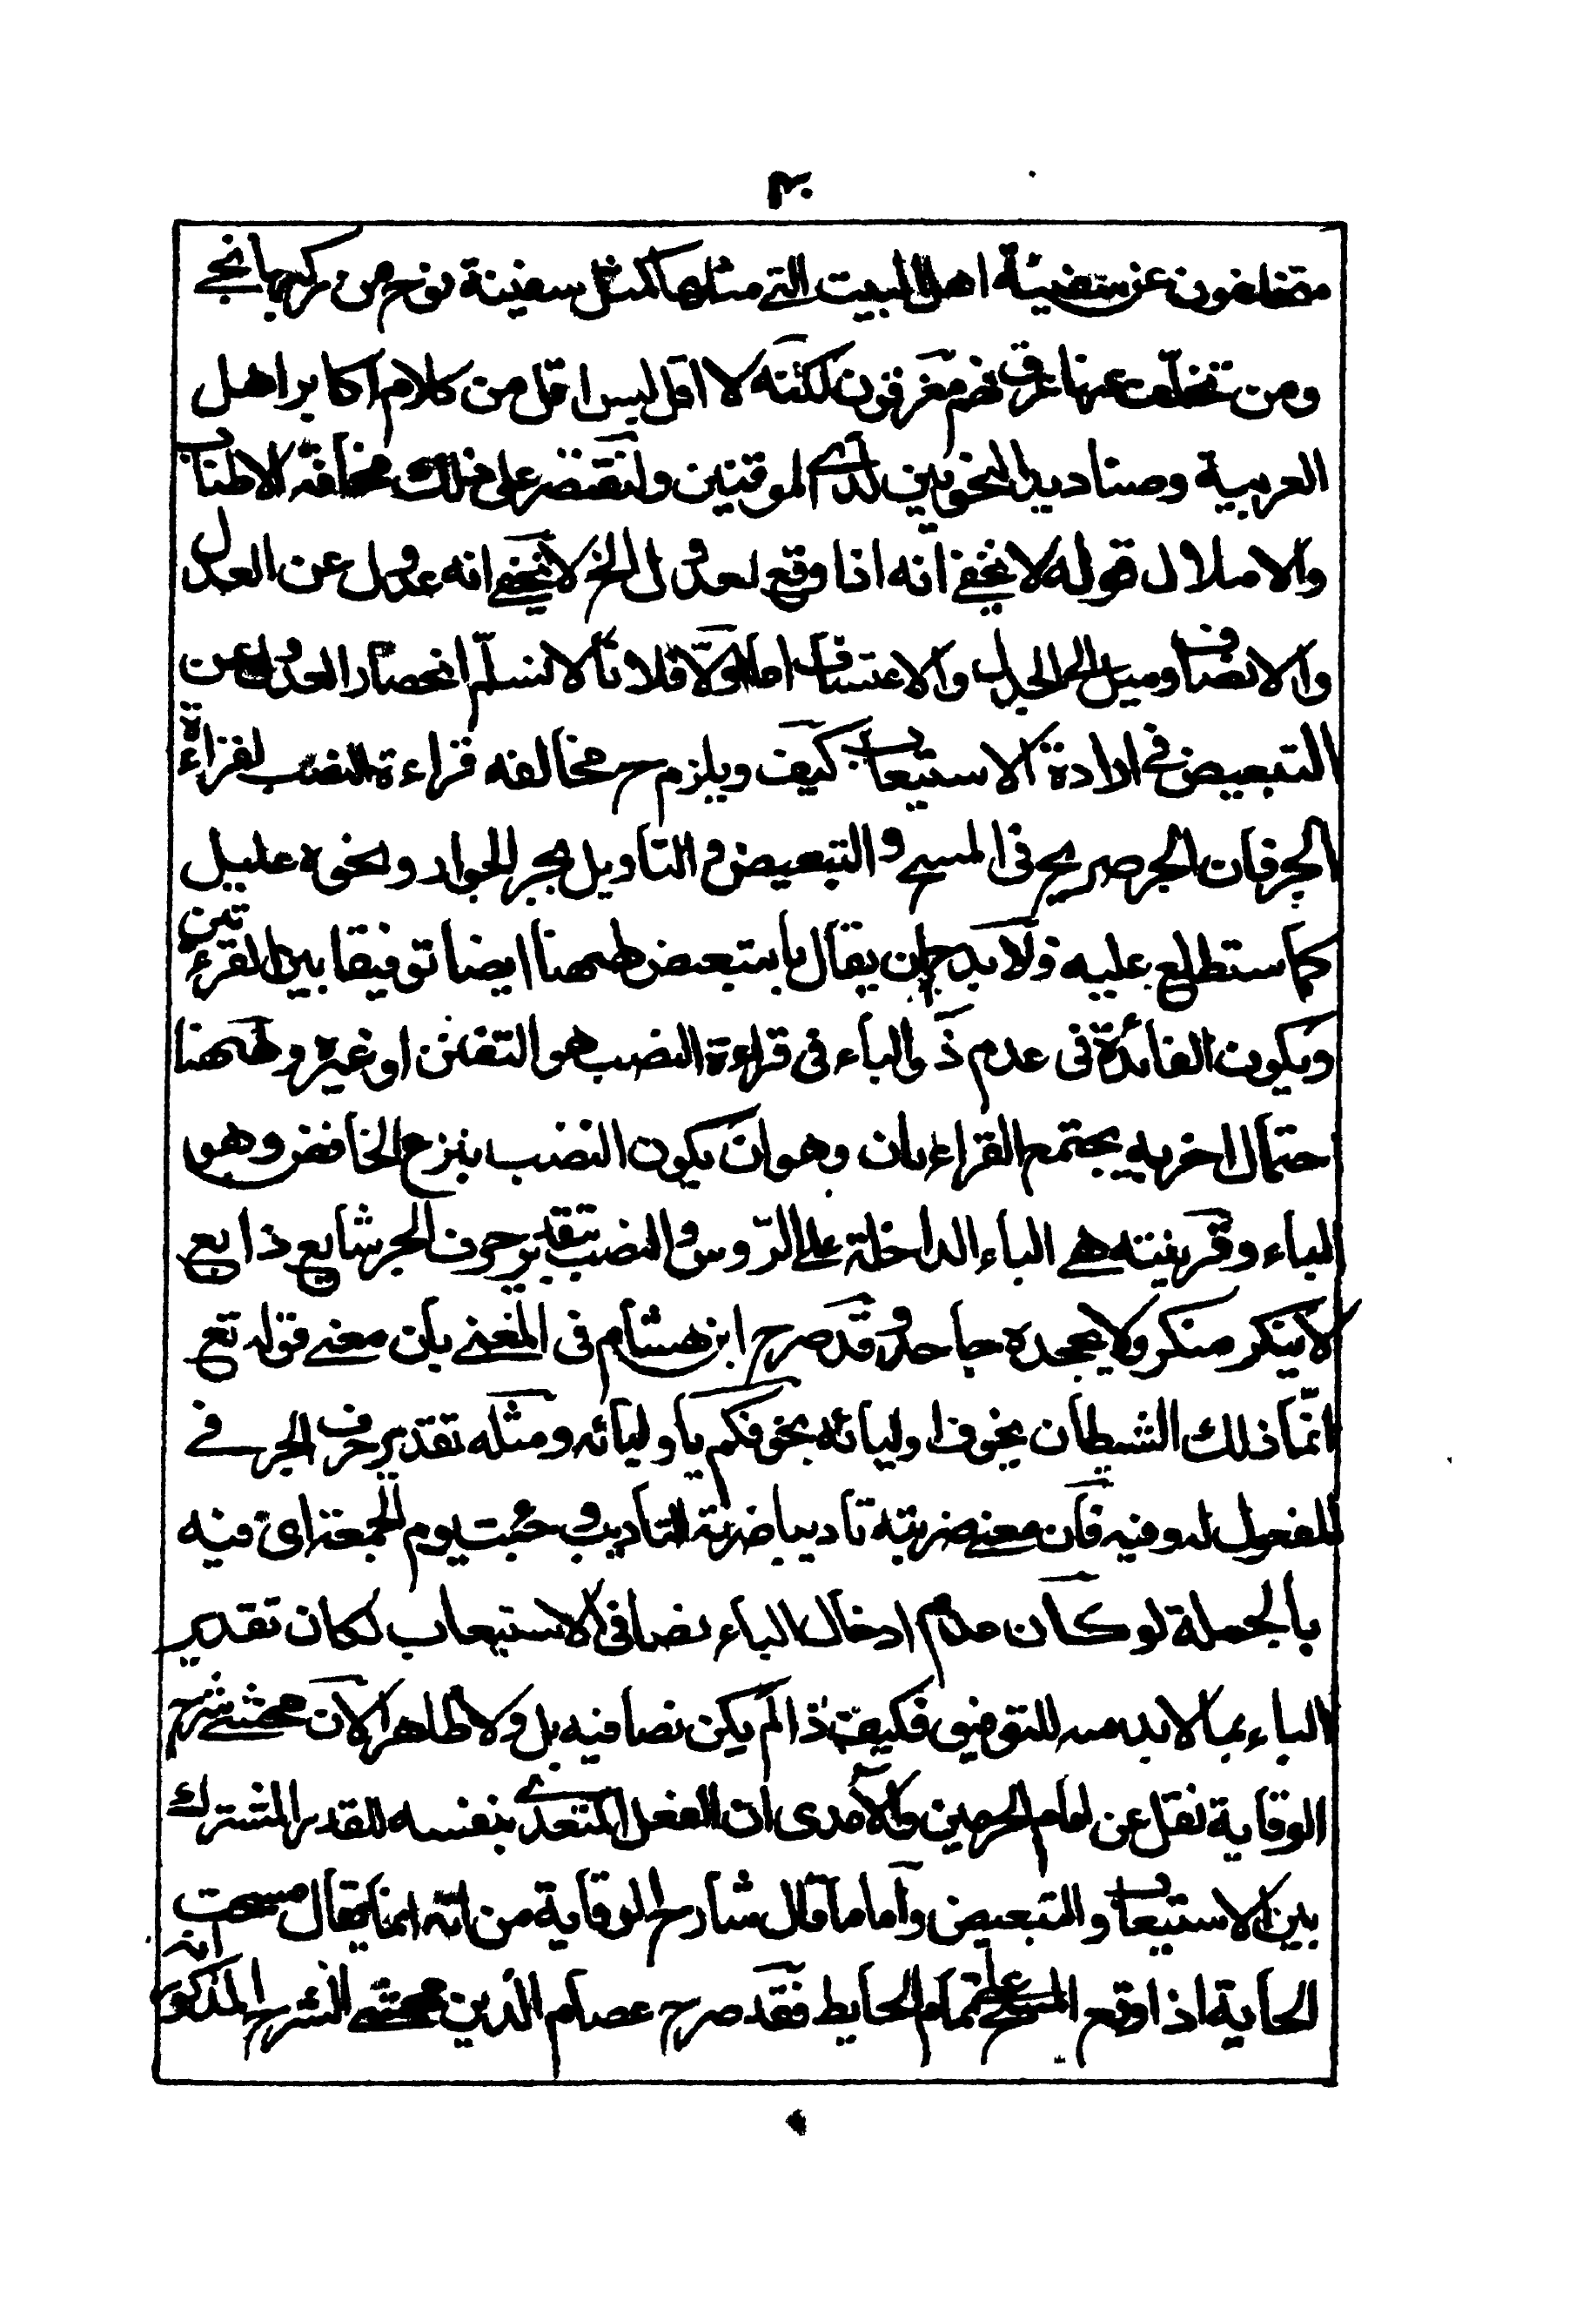 ٣٠
متخلفون عن سفينة اهل البيت التي مثلها كمثل سفينة نوح من ركبها نجي
ومن تخلف عنها غرق فهم مغرقون لكنه لا اقل ليس اقل من كلام اكابر اهل
العربية وصناديد النحويين لدى الموقنين ولنقتصر على ذلك مخافة الاطناب
والاملال قوله لا يخفى انه اذا وقع لعدول الخ لا يخفى انه عدول عن العدل
والانصاف وميل الى الجدل والاعتساف اما اولا فلانا لا نسلم انحصار العدول عن
التبعيض في ارادة الاستيعاب كيف ويلزم ح مخالفه قراءة النصب لقراءة
الجر فان الجر صريح في المسح و التبعيض و التاويل بجر الجوار ونحوه عليل
كما ستطلع عليه فلا بد ح ان يقال بالتبعيض ههنا ايضا توفيقا بين القرءتين
ويكون الفائدة في عدم ذكر الباء في قراءة النصب هو التفنن او غيره وههنا
احتمال اخر به يجتمع القراءتان وهو ان يكون النصب بنزع الخافض وهو
الباء وقرينته هي الباء الداخلة على الرّوس والنصب بتقدير حرف الجر شايع ذايع
لا ينكر منكر ولا يجحده جاحد وقد صرح ابن هشام في المغني بان معنى قوله تع
انّما ذلك الشيطان يخوف اوليائه يخوفكم باوليائه ومثله تقدير حرف الجر في
المفعول له وفيه فان معنى ضربته تاديبا ضربته للتاديب و جئت يوم الجمعة اى فيه
بالجملة لو كان عدم ادخال الباء نصا في الاستيعاب لكان تقدير
الباء بما لا بد منه للتوفيق فكيف اذا لم يكن نصا فيه بل ولا ظاهرا لان محشى شرح
الوقاية نقل عن امام الحرمين والآمدى ان الفعل المتعدى بنفسه للقدر المشترك
بين الاستيعاب والتبعيض واما ما قال شارح الوقاية من انه انما يقال مسحت
الحايط اذا وقع المسح على تمام الحايط فقد صرح عصام الدين محشى الشرح المذكور انه